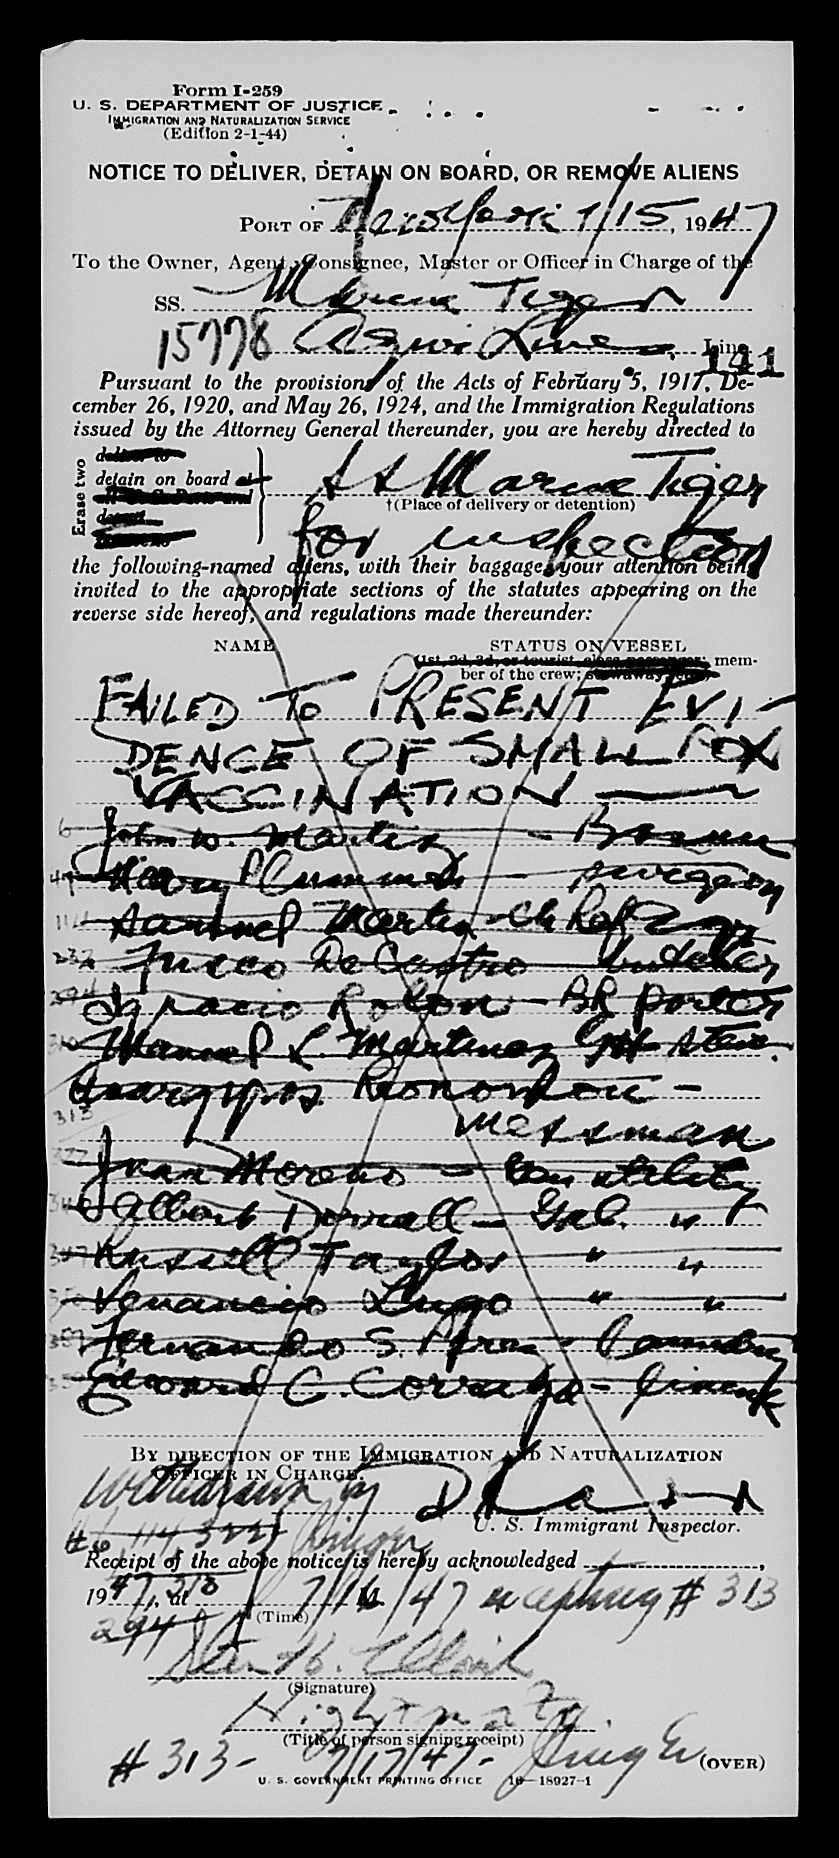 Form I-259
U. S. DEPARTMENT OF JUSTICE
IMMIGRATION AND NATURALIZATION SERVICE
(Edition 2-1-44)
NOTICE TO DELIVER, DETAIN ON BOARD, OR REMOVE ALIENS
PORT OF New York 7/15, 1947
To the Owner, Agent, Consignee, Master or Officer in Charge of the
SS. Marine Tiger
15778 Agwi Lines Line
141
Pursuant to the provisions of the Acts of February 5, 1917, De-
cember 26, 1920, and May 26, 1924, and the Immigration Regulations
issued by the Attorney General thereunder, you are hereby directed to
Erase two
deliver to
detain on board at
SS Marine Tiger
†(Place of delivery or detention)
for inspection
the following-named aliens, with their baggage, your attention being
invited to the appropriate sections of the statutes appearing on the
reverse side hereof, and regulations made thereunder:
NAME STATUS ON VESSEL
(1st, 2d, 3d, or tourist class passenger; mem-
ber of the crew; stowaway, etc.)
FAILED TO PRESENT EVI-
DENCE OF SMALL POX
VACCINATION
6 John W. Martin -
Plummer - surgeon
114 Samuel Martin - Ch Ref Engr
De Castro butcher
294 Ignacio Rolon - BR porter
310 Manuel L Martinez stew.
313
messman
Juan Moreno - utility
Albert - Gal. "
Russell Taylor " "
Venancio Lugo " "
Fernando S. -
Edward C. -
BY DIRECTION OF THE IMMIGRATION AND NATURALIZATION
OFFICER IN CHARGE.
withdrawn
U. S. Immigrant Inspector.
#6 114
Receipt of the above notice is hereby acknowledged
1947, 310 at 7/16/47 M. excepting # 313
294
(Time)
(Signature)
Night mate
(Title of person signing receipt)
# 313 - 7/17/47 -
(OVER)
U. S. GOVERNMENT PRINTING OFFICE 16—18927-1